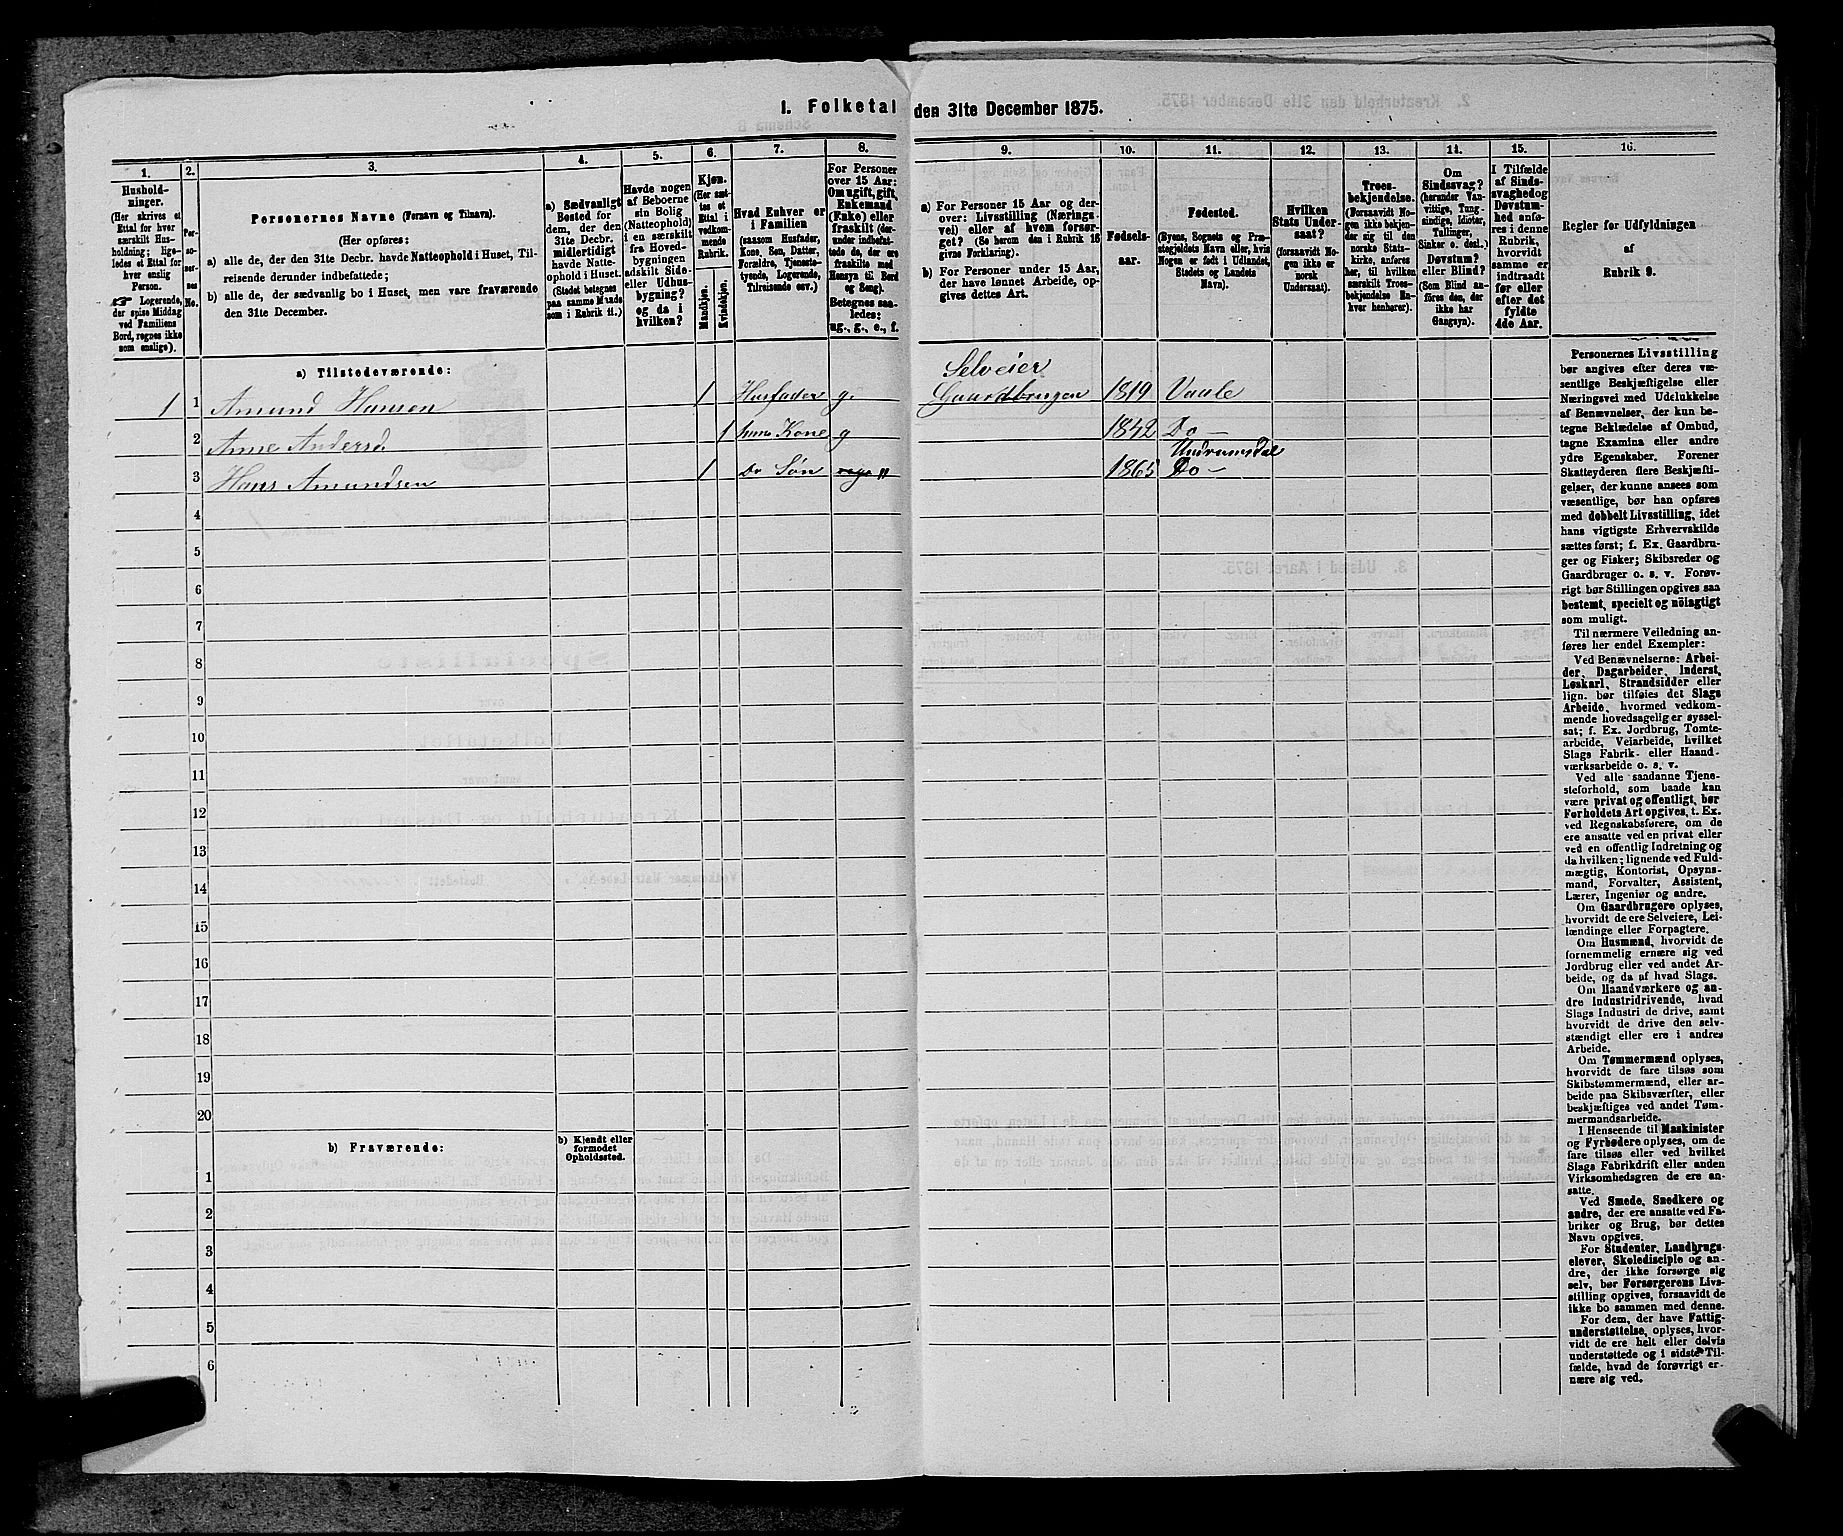 1. Folketal den 31te December 1875.
1.
Hushold-
ninger.
(Her skrives et
Ettal for hver
særskilt Hus-
holdning; lige-
ledes et Ettal for
hver enslig
Person.
Logerende,
der spise Middag
ved Familiens
Bord, regnes ikke
som enslige).
2.
Per-
so-
ner-
nes
No.
3.
Personernes Navne (Fornavn og Tilnavn).
(Her opføres:
a) alle de, der den 31te Decbr. havde Natteophold i Huset, Til-
reisende derunder indbefattede;
b) alle de, der sædvanlig bo i Huset, men vare fraværende
den 31te December.
4.
a) Sædvanligt
Bosted for
dem, der den
31te Decbr.
midlertidigt
havde Natte-
ophold i Huset.
(Stedet betegnes
paa samme Maade
som i Rubrik 11.)
5.
Havde nogen
af Beboerne
sin Bolig
(Natteophold)
i en særskilt
fra Hoved-
bygningen
adskilt Side-
eller Udhus-
bygning?
og da i
hvilken?
6.
Kjøn.
(Her sæt-
tes et
Ettal i
vedkom-
mende
Rubrik.
Mandkjøn.
Kvindekjøn.
7.
Hvad Enhver er
i Familien
(saasom Husfader,
Kone, Søn, Datter,
Forældre, Tjeneste-
tyende, Logerende,
Tilreisende osv.)
8.
For Personer
over 15 Aar:
Om ugift, gift,
Enkemand
(Enke) eller
fraskilt (der-
under indbefat-
tede de, der ere
fraskilte med
Hensyn til Bord
og Seng).
Betegnes saa-
ledes:
ug., g., e., f.
9.
a) For Personer 15 Aar og der-
over: Livsstilling (Nærings-
vei) eller af hvem forsør-
get? (Se herom den i Rubrik 16
givne Forklaring).
b) For Personer under 15 Aar,
der have lønnet Arbeide, op-
gives dettes Art.
10.
Fødsels-
aar.
11.
Fødested.
(Byens, Sognets og Præ-
stegjeldets Navn eller, hvis
Nogen er født i Udlandet,
Stedets og Landets
Navn).
12.
Hvilken
Stats Under-
saat?
(forsaavidt No-
gen ikke er
norsk
Undersaat).
13.
Troes-
bekjendelse.
(Forsaavidt No-
gen ikke bekjen-
der sig til den
norske Stats-
kirke, anføres
her, til hvilken
særskilt Troes-
bekjendelse En-
hver henhører).
14.
Om
Sindssvag?
(herunder Van-
vittige, Tung-
sindige, Idioter,
Tullinger,
Sinker o. desl.)
Døvstum?
eller Blind?
(Som Blind an-
føres den, der
ikke har
Gangsyn).
15.
I Tilfælde
af Sinds-
svaghed og
Døvstum-
hed anfø-
res i denne
Rubrik,
hvorvidt
samme er
indtraadt
før eller
efter det
fyldte
4de Aar.
16.
Regler for Udfyldningen
af
Rubrik 9.
a) Tilstedeværende:
1 1 Amund Hansen 1 Husfader g. Selveier Gaardbruger 1819 Vaale
2 Anne Andersd. 1 hans Kone g 1842 Do —
3 Hans Amundsen 1 Do Søn " 1865 Undrumsdal Do —
4
5
6
7
8
9
10
11
12
13
14
15
16
17
18
19
20
b) Fraværende:
b) Kjendt eller
formodet
Opholdssted.
1
2
3
4
5
6
Personernes Livsstilling
bør angives efter deres væ-
sentlige Beskjæftigelse eller
Næringsvei med Udelukkelse
af Benævnelser, der kun be-
tegne Beklædelse af Ombud,
tagne Examina eller andre
ydre Egenskaber. Forener
Skatteyderen flere Beskjæfti-
gelser, der kunne ansees som
væsentlige, bør han opføres
med dobbelt Livsstilling, idet
hans vigtigste Erhvervskilde
sættes først; f. Ex. Gaardbru-
ger og Fisker; Skibsreder og
Gaardbruger o. s. v. Forøv-
rigt bør Stillingen opgives saa
bestemt, specielt og nöiagtigt
som muligt.
Til nærmere Veiledning an-
føres her endel Exempler:
Ved Benævnelserne: Arbei-
der, Dagarbeider, Inderst,
Løskarl, Strandsidder eller
lign. bør tilføies det Slags
Arbeide, hvormed vedkom-
mende hovedsagelig er syssel-
sat; f. Ex. Jordbrug, Tomte-
arbeide, Veiarbeide, hvilket
Slags Fabrik- eller Haand-
værksarbeide o. s. v.
Ved alle saadanne Tjene-
steforhold, som baade kan
være privat og offentligt, bør
Forholdets Art opgives, t. Ex.
ved Regnskabsførere, om de
ere ansatte ved en privat eller
ved en offentlig Indretning og
da hvilken; lignende ved Fuld-
mægtig, Kontorist, Opsyns-
mand, Forvalter, Assistent,
Lærer, Ingeniør og andre.
Om Gaardbrugere oplyses,
hvorvidt de ere Selveiere, Lei-
lændinge eller Forpagtere.
Om Husmænd, hvorvidt de
fornemmelig ernære sig ved
Jordbrug eller ved andet Ar-
beide, og da af hvad Slags.
Om Haandværkere og an-
dre Industridrivende, hvad
Slags Industri de drive, samt
hvorvidt de drive den selv-
stændigt eller ere i andres
Arbeide.
Om Tømmermænd oplyses,
hvorvidt de fare tilsøs som
Skibstømmermænd, eller ar-
beide paa Skibsværfter, eller
beskjæftiges ved andet Tøm-
mermandsarbeide.
I Henseende til Maskinister
og Fyrbødere oplyses, om de
fare tilsøs eller ved hvilket
Slags Fabrikdrift eller anden
Virksomhedsgren de ere an-
satte.
Ved Smede, Snedkere og
andre, der ere ansatte ved Fa-
briker og Brug, bør dettes
Navn opgives.
For Studenter, Landbrugs-
elever, Skoledisciple og an-
dre, der ikke forsørge sig
selv, bør Forsørgerens Livs-
stilling opgives, forsaavidt de
ikke bo sammen med denne.
For dem, der have Fattig-
understøttelse, oplyses, hvor-
vidt de ere helt eller delvis
understøttede og i sidste Til-
fælde, hvad de forøvrigt er-
nære sig ved.